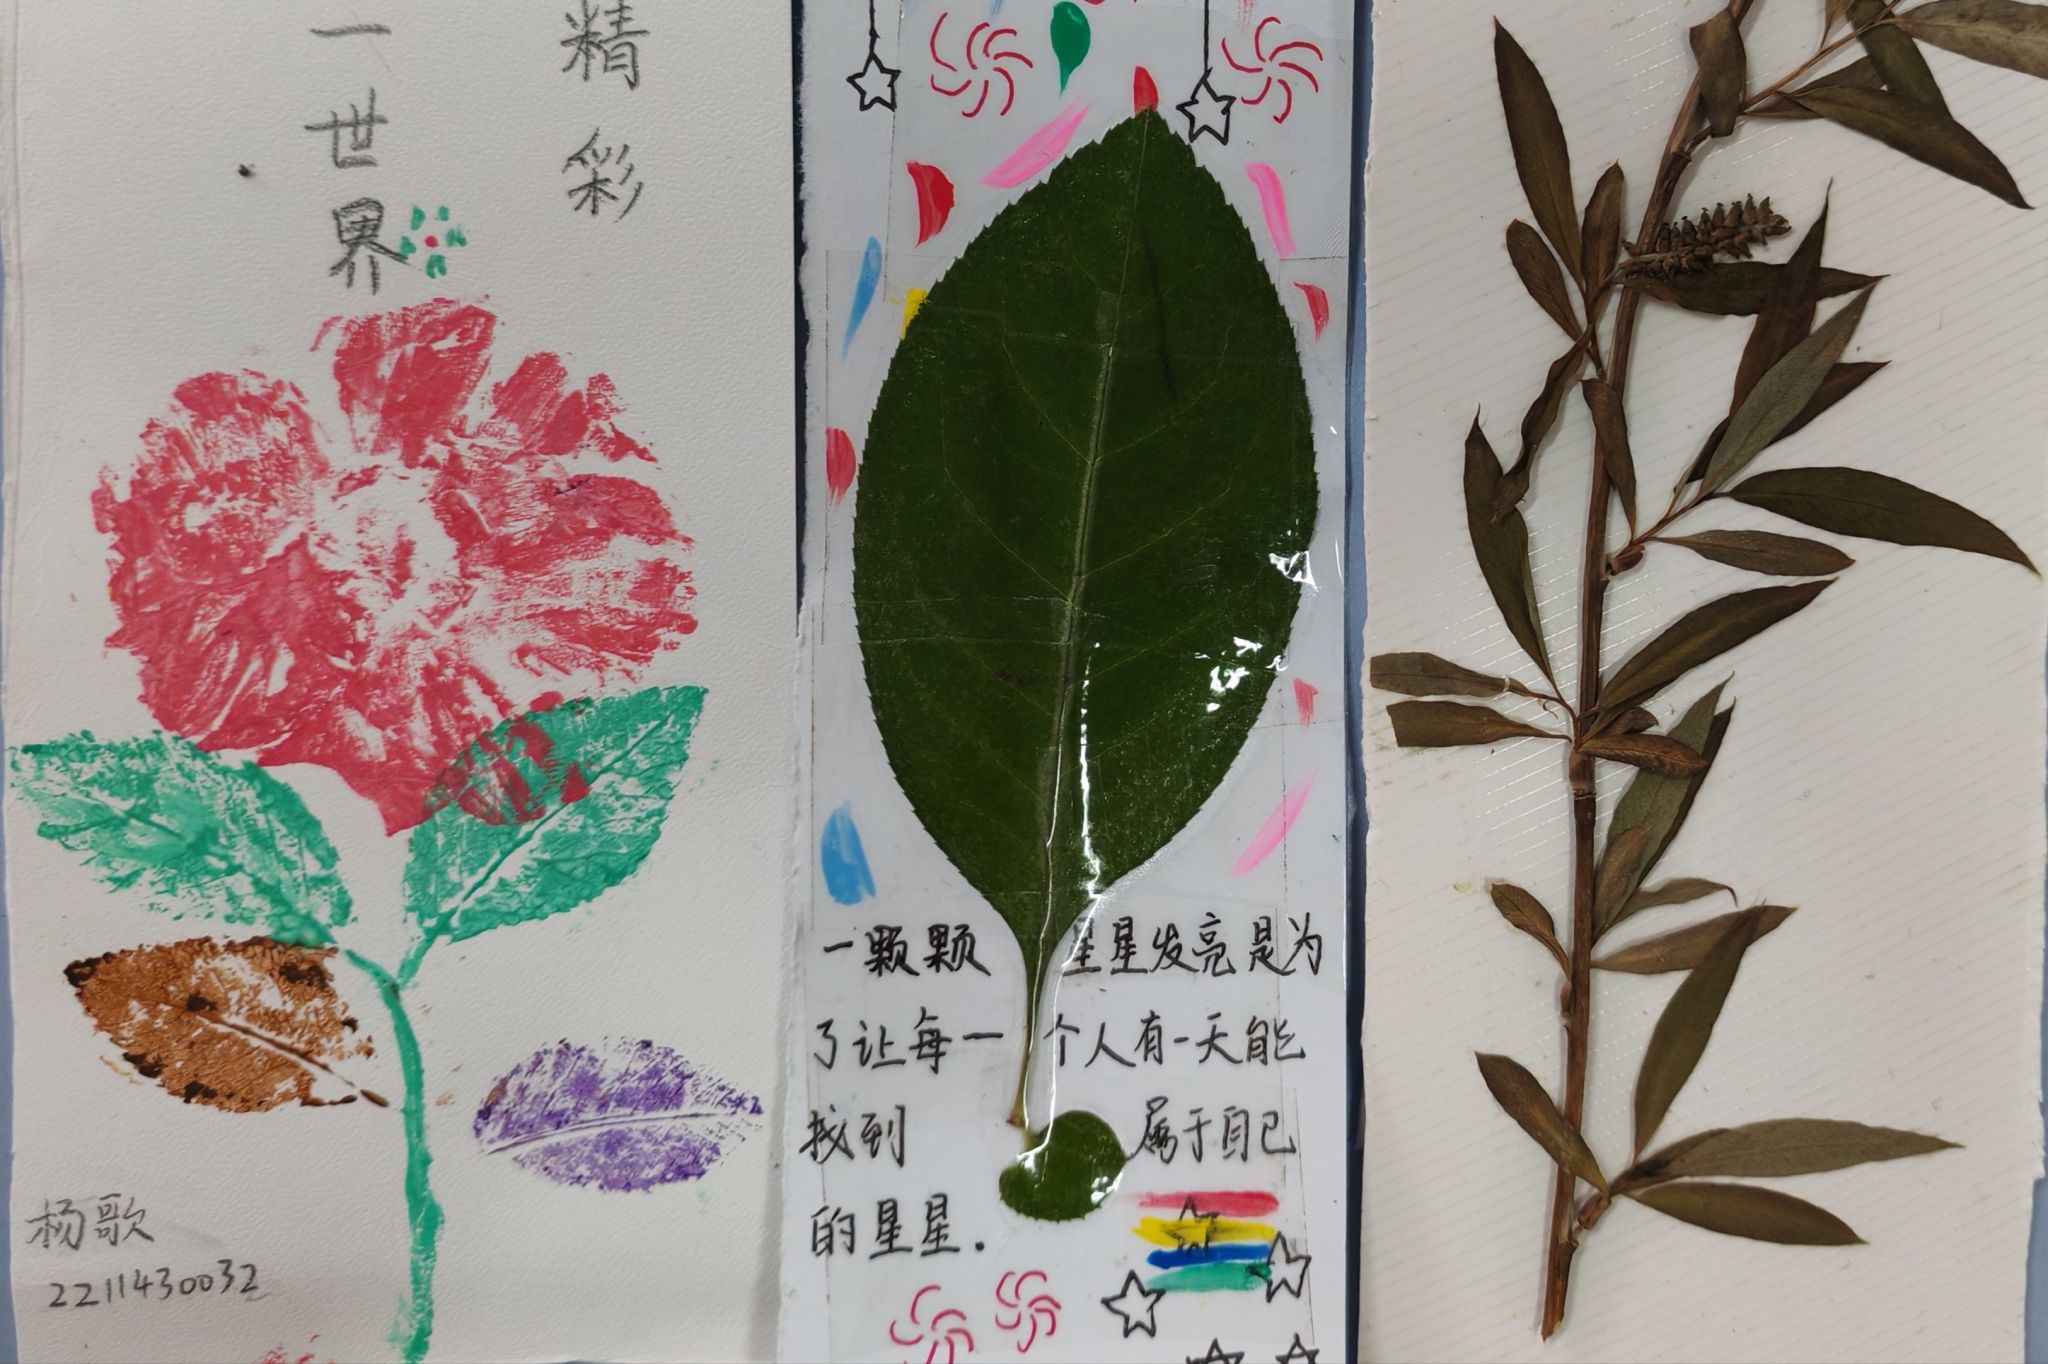 精彩
一世界
杨歌
2211430032
一颗颗星星发亮是为
了让每一个人有一天能
找到属于自己
的星星.